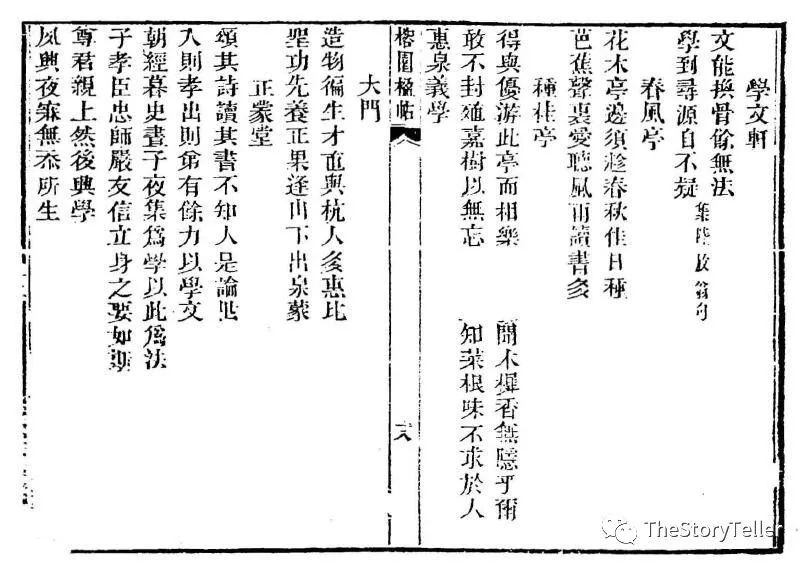 學文軒
文能換骨餘無法
學到尋源自不疑 集陸放翁句
春風亭
花木亭邊須趁春秋佳日種
芭蕉聲裏愛聽風雨讀書多
種桂亭
得與優游此亭而相樂 聞木樨香無隱乎爾
敢不封殖嘉樹以無忘 知菜根味不求於人
惠泉義學
榕園楹帖
大門
造物徧生才直與杭人多惠比
聖功先養正果逢山下出泉蒙
正蒙堂
頌其詩讀其書不知人是論世
入則孝出則弟有餘力以學文
朝經暮史晝子夜集為學以此為法
子孝臣忠師嚴友信立身之要如斯
尊君親上然後興學
夙興夜寐無忝所生
TheStoryTeller